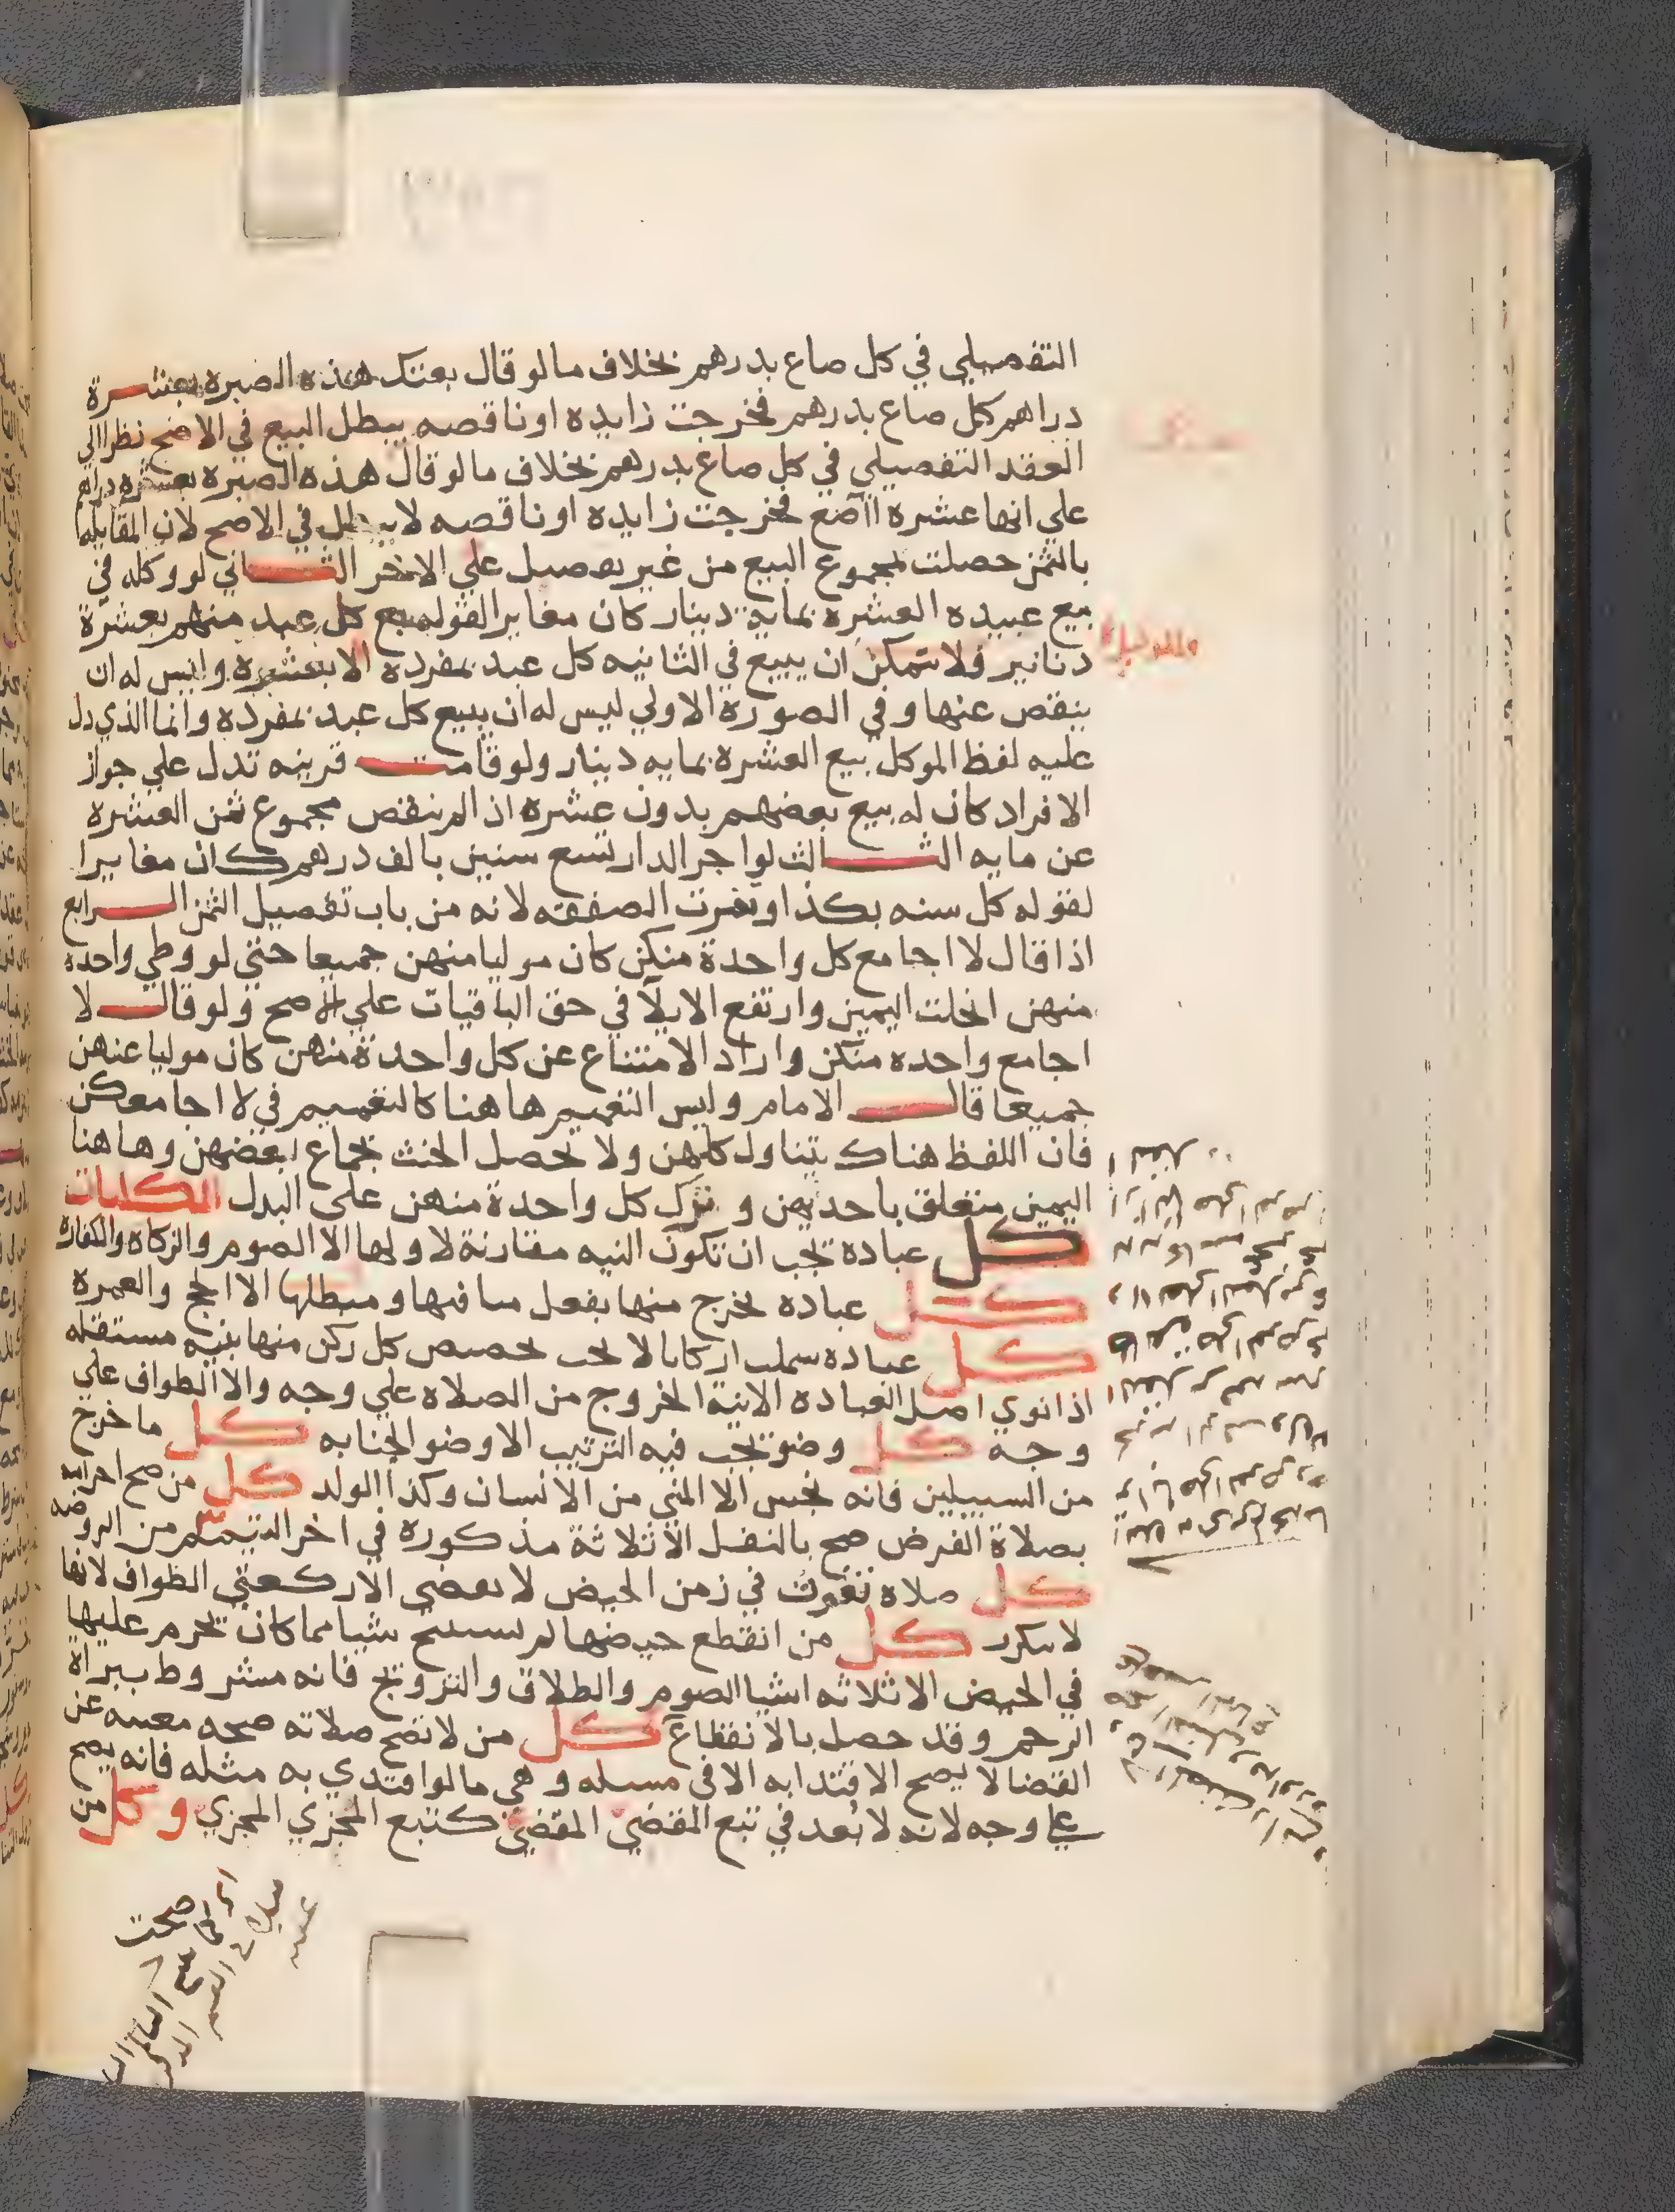 التفصيلي في كل صاع بدرهم بخلاف ما لو قال بعتك هذه الصبره بعشرة
دراهم كل صاع بدرهم فخرجت زايده او ناقصه يبطل البيع في الاصح نظرا الي
العقد التفصيلي في كل صاع بدرهم بخلاف ما لو قال هذه الصبره بعشره دراهم
علي انها عشره ااصع فخرجت زايده او ناقصه لا يبطل في الاصح لان المقابله
بالثمن حصلت لمجموع البيع من غير تفصيل علي الاخر الثاني لو وكله في
بيع عبيده العشره بمايه دينار كان مغايرا لقوله بع كل عبد منهم بعشرة
دنانير فلا يتمكن ان يبيع في الثانيه كل عبد بمفرده الا بعشره وليس له ان
ينقص عنها وفي الصورة الاولي ليس له ان يبيع كل عبد بمفرده وانما الذي دل
عليه لفظ الموكل بيع العشره بمايه دينار ولو قامت قرينه تدل علي جواز
الافراد كان له بيع بعضهم بدون عشره اذا لم ينقص مجموع ثمن العشره
عن مايه الثالث لو اجر الدار تسع سنين بالف درهم كان مغايرا
لقوله كل سنه بكذا وتفرت الصفقه لانه من باب تفصيل الثمن الرابع
اذا قال لا اجامع كل واحدة منكن كان موليا منهن جميعا حتي لو وطي واحده
منهن انحلت اليمين وارتفع الايلا في حق الباقيات علي الاصح ولو قال لا
اجامع واحده منكن واراد الامتناع عن كل واحدة منهن كان موليا عنهن
جميعا قال الامام وليس التعميم هاهنا كالتعميم في لا اجامعكن
فان اللفظ هناك يتناول كلهن ولا يحصل الحنث بجماع بعضهن وهاهنا
اليمين متعلق باحديهن ونزل كل واحدة منهن علي البدل الكليات
كل عباده يجب ان تكون النيه مقارنة لاولها الا الصوم والزكاه والكفاره
كل عباده يخرج منها بفعل منافيها ومبطلها الا الحج والعمره
كل عباده شملت اركانا لا يجب تخصيص كل ركن منها بنيه مستقله
اذا نوي اصل العباده الا نية الخروج من الصلاه علي وجه والا الطواف علي
وجه كل وضو يجب فيه الترتيب الا وضو الجنابه كل ما خرج
من السبيلين فانه نجس الا المني من الانسان وكذا الولد كل من صح احرامه
بصلاة الفرض صح بالنفل الا ثلاثة مذكورة في اخر التيمم من الروضه
كل صلاه تفوت في زمن الحيض لا تقضي الا ركعتي الطواف لانها
لا تتكرر كل من انقطع حيضها لم تستبح شيا مما كان يحرم عليها
في الحيض الا ثلاثه اشيا الصوم والطلاق والتزويج فانه مشروط ببراه
الرحم وقد حصل بالانقطاع كل من لا تصح صلاته صحه مغنيه عن
القضا لا يصح الاقتدا به الا في مسله وهي ما لو اقتدي به مثله فانه يصح
علي وجه لانه لا بعد في تبع المقضي المقضي كتبع المجزي المجزي وكل من
صحت